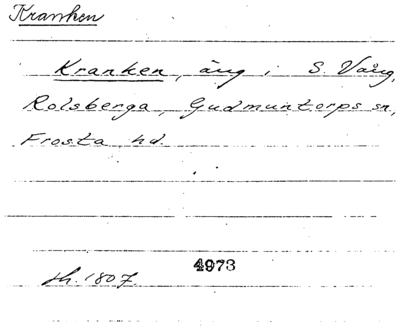 Kranken
Kranken, äng i S. Vång,
Rolsberga, Gudmuntorps sn,
Frosta hd.
4973
sh. 1807.